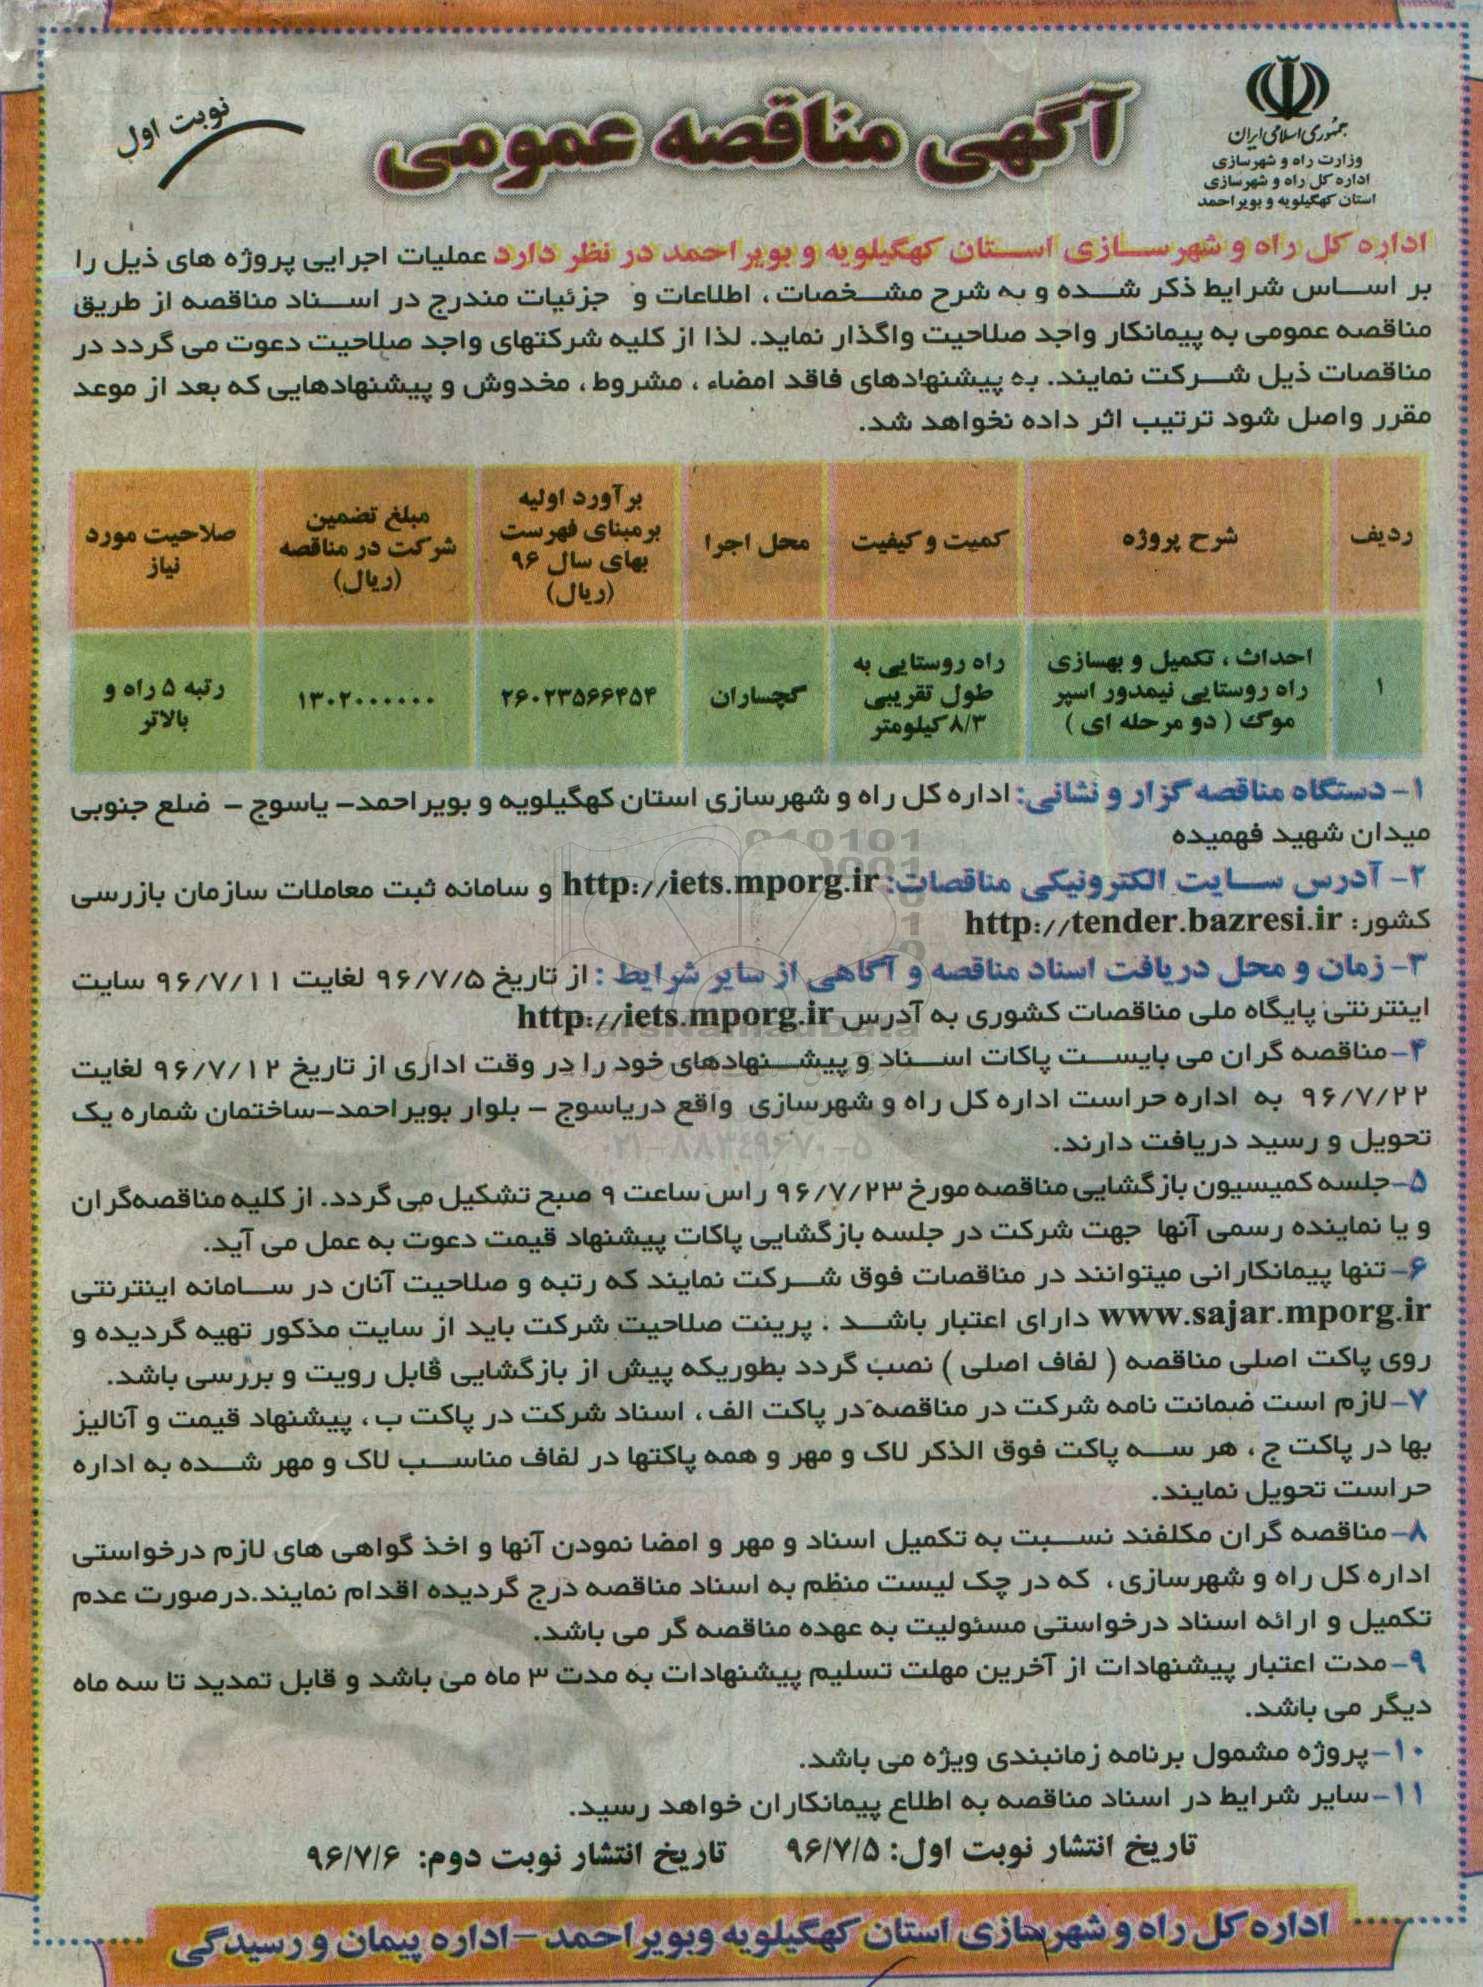 جمهوری اسلامی ایران
وزارت راه و شهرسازی
اداره کل راه و شهرسازی
استان کهگیلویه و بویراحمد
آگهی مناقصه عمومی
نوبت اول
اداره کل راه و شهرسازی استان کهگیلویه و بویراحمد در نظر دارد عملیات اجرایی پروژه های ذیل را
بر اساس شرایط ذکر شده و به شرح مشخصات ، اطلاعات و جزئیات مندرج در اسناد مناقصه از طریق
مناقصه عمومی به پیمانکار واجد صلاحیت واگذار نماید. لذا از کلیه شرکتهای واجد صلاحیت دعوت می گردد در
مناقصات ذیل شرکت نمایند. به پیشنهادهای فاقد امضاء ، مشروط ، مخدوش و پیشنهادهایی که بعد از موعد
مقرر واصل شود ترتیب اثر داده نخواهد شد.
ردیف
شرح پروژه
کمیت و کیفیت
محل اجرا
برآورد اولیه
برمبنای فهرست
بهای سال ۹۶
(ریال)
مبلغ تضمین
شرکت در مناقصه
(ریال)
صلاحیت مورد
نیاز
۱
احداث ، تکمیل و بهسازی
راه روستایی نیمدور اسپر
موگ ( دو مرحله ای )
راه روستایی به
طول تقریبی
۸/۳کیلومتر
گچساران
۲۶۰۲۳۵۶۶۴۵۴
۱۳۰۲۰۰۰۰۰۰
رتبه ۵ راه و
بالاتر
۱- دستگاه مناقصه گزار و نشانی: اداره کل راه و شهرسازی استان کهگیلویه و بویراحمد- یاسوج - ضلع جنوبی
میدان شهید فهمیده
۲- آدرس سایت الکترونیکی مناقصات: http://iets.mporg.ir و سامانه ثبت معاملات سازمان بازرسی
کشور: http://tender.bazresi.ir
۳- زمان و محل دریافت اسناد مناقصه و آگاهی از سایر شرایط : از تاریخ ۹۶/۷/۵ لغایت ۹۶/۷/۱۱ سایت
اینترنتی پایگاه ملی مناقصات کشوری به آدرس http://iets.mporg.ir
۴- مناقصه گران می بایست پاکات اسناد و پیشنهادهای خود را در وقت اداری از تاریخ ۹۶/۷/۱۲ لغایت
۹۶/۷/۲۲ به اداره حراست اداره کل راه و شهرسازی واقع دریاسوج - بلوار بویراحمد-ساختمان شماره یک
تحویل و رسید دریافت دارند.
۰۲۱-۸۸۳۴۹۶۷۰-۵
۵-جلسه کمیسیون بازگشایی مناقصه مورخ ۹۶/۷/۲۳ راس ساعت ۹ صبح تشکیل می گردد. از کلیه مناقصه‌گران
و یا نماینده رسمی آنها جهت شرکت در جلسه بازگشایی پاکات پیشنهاد قیمت دعوت به عمل می آید.
۶-تنها پیمانکارانی میتوانند در مناقصات فوق شرکت نمایند که رتبه و صلاحیت آنان در سامانه اینترنتی
www.sajar.mporg.ir دارای اعتبار باشد . پرینت صلاحیت شرکت باید از سایت مذکور تهیه گردیده و
روی پاکت اصلی مناقصه ( لفاف اصلی ) نصب گردد بطوریکه پیش از بازگشایی قابل رویت و بررسی باشد.
۷-لازم است ضمانت نامه شرکت در مناقصه در پاکت الف ، اسناد شرکت در پاکت ب ، پیشنهاد قیمت و آنالیز
بها در پاکت ج ، هر سه پاکت فوق الذکر لاک و مهر و همه پاکتها در لفاف مناسب لاک و مهر شده به اداره
حراست تحویل نمایند.
۸-مناقصه گران مکلفند نسبت به تکمیل اسناد و مهر و امضا نمودن آنها و اخذ گواهی های لازم درخواستی
اداره کل راه و شهرسازی ، که در چک لیست منظم به اسناد مناقصه درج گردیده اقدام نمایند.درصورت عدم
تکمیل و ارائه اسناد درخواستی مسئولیت به عهده مناقصه گر می باشد.
۹-مدت اعتبار پیشنهادات از آخرین مهلت تسلیم پیشنهادات به مدت ۳ ماه می باشد و قابل تمدید تا سه ماه
دیگر می باشد.
۱۰-پروژه مشمول برنامه زمانبندی ویژه می باشد.
۱۱-سایر شرایط در اسناد مناقصه به اطلاع پیمانکاران خواهد رسید.
تاریخ انتشار نوبت اول: ۹۶/۷/۵ تاریخ انتشار نوبت دوم: ۹۶/۷/۶
اداره کل راه و شهرسازی استان کهگیلویه وبویراحمد - اداره پیمان و رسیدگی